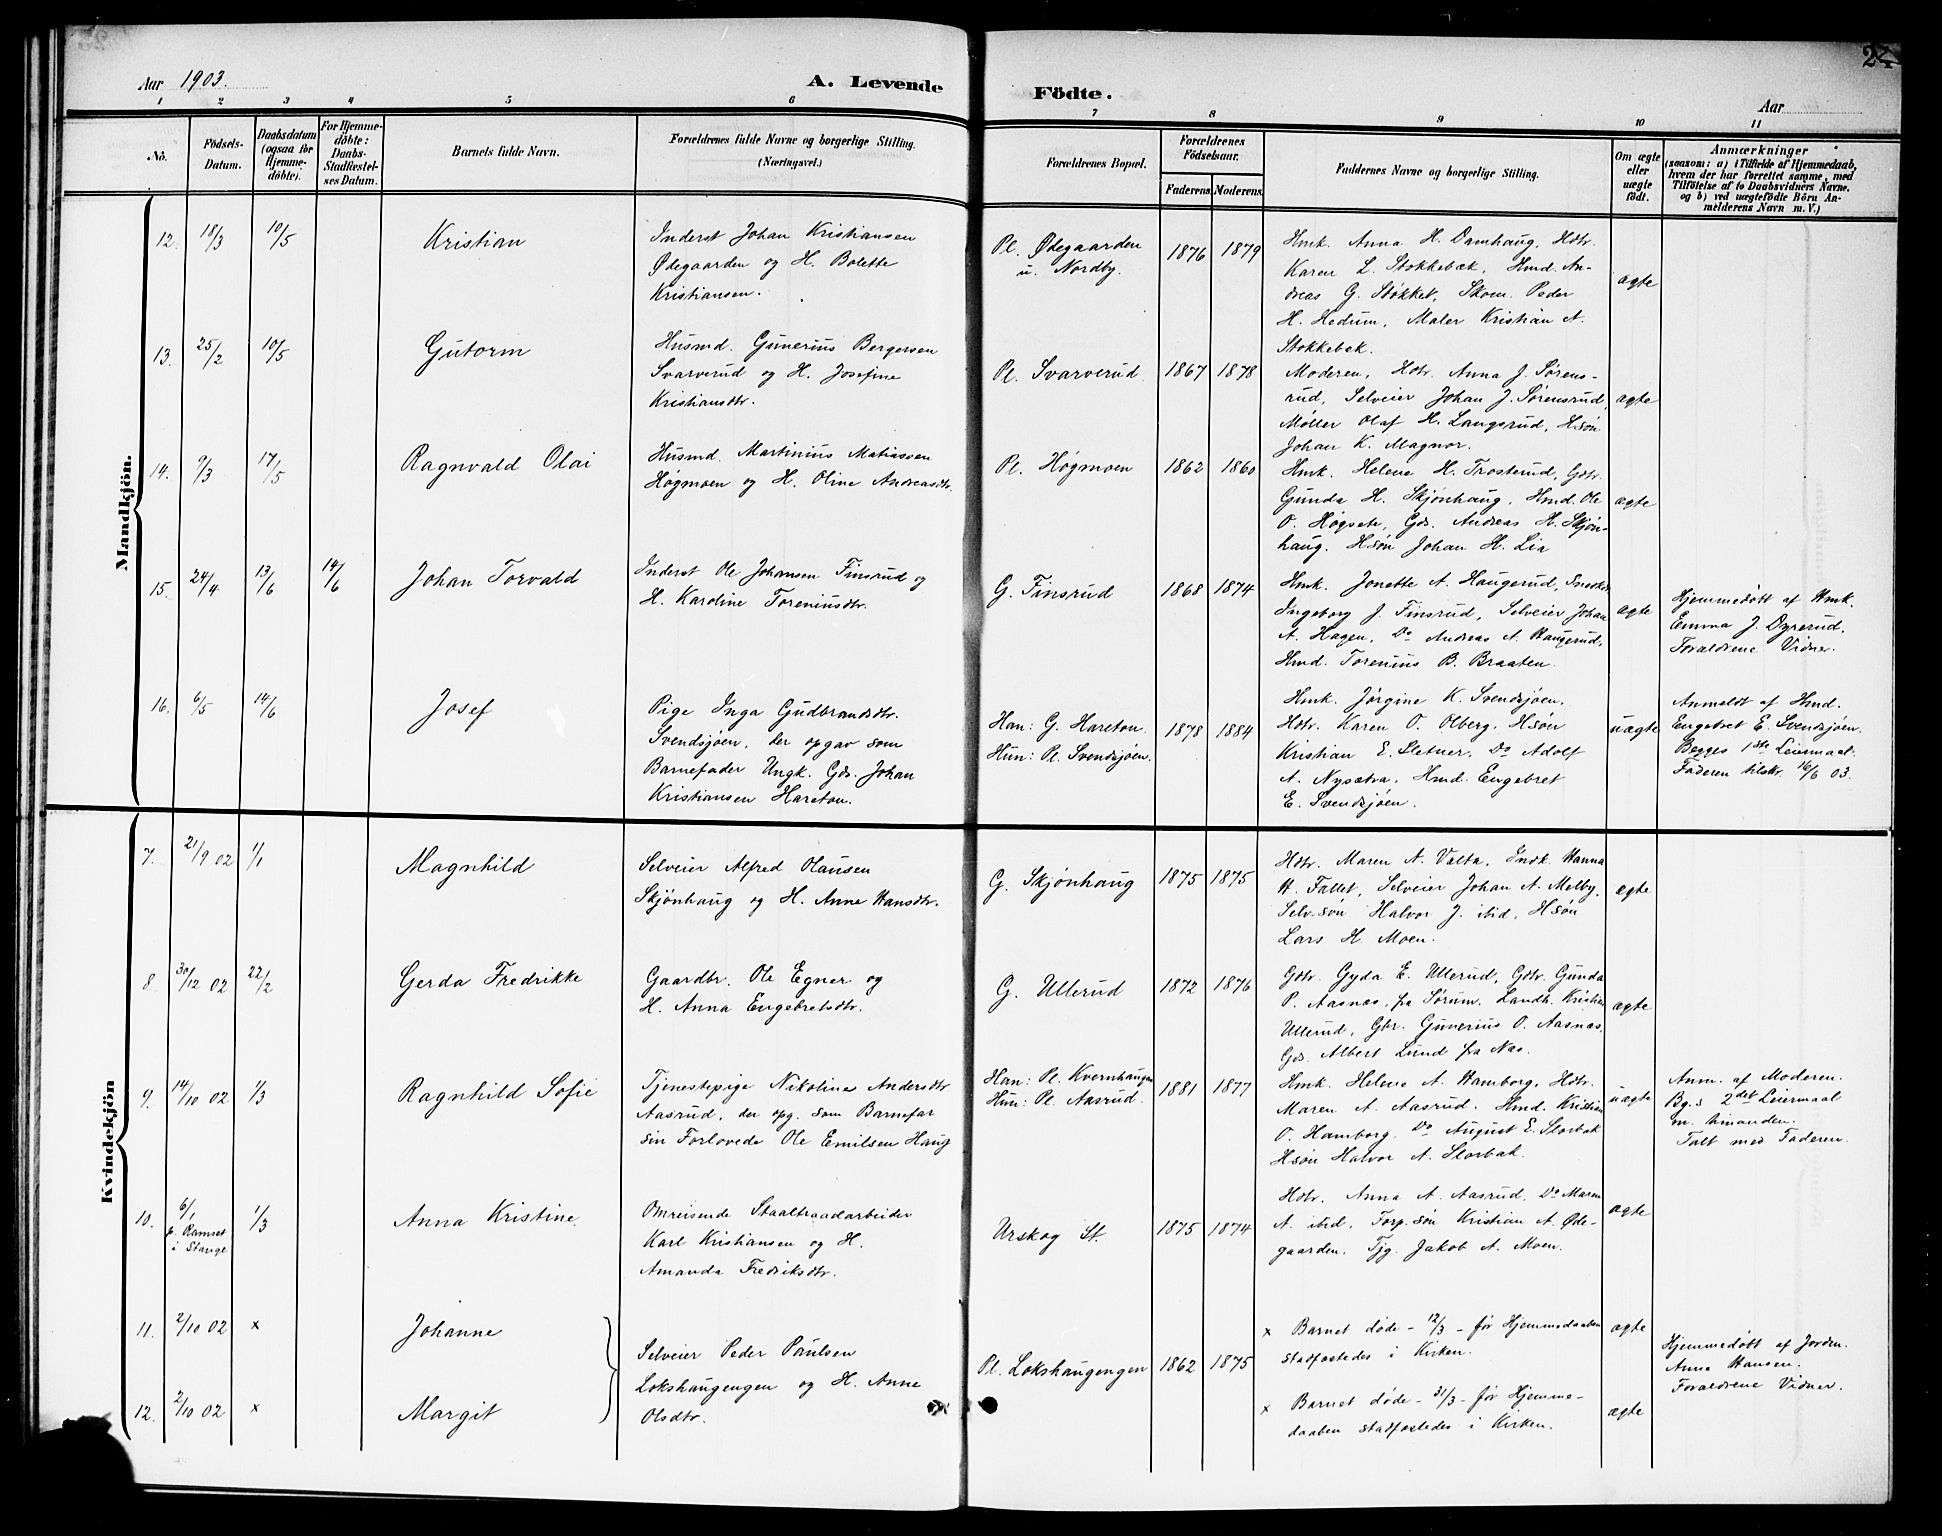 24
Aar 1903.
A. Levende Födte.
Aar
1 2 3 4 5 6 7 8 9 10 11
No.
Födsels-
Datum.
Daabsdatum
(ogsaa for
Hjemme-
döbte).
For Hjemme-
döbte:
Daabs-
Stadfæstel-
ses Datum.
Barnets fulde Navn.
Forældrenes fulde Navne og borgerlige Stilling.
(Næringsvei.)
Forældrenes Bopæl.
Forældrenes
Födselsaar.
Faderens. Moderens.
Faddernes Navne og borgerlige Stilling.
Om ægte
eller
uægte
födt.
Anmærkninger
(saasom: a) i Tilfælde af Hjemmedaab,
hvem der har forrettet samme, med
Tilföielse af to Daabsvidners Navne.
og b) ved uægtefödte Börn An-
melderens Navn m. V.)
Mandkjön.
12. 18/3 10/5
Kristian
Inderst Johan Kristiansen
Ødegaarden og H. Bolette
Kristiansen.
Pl. Ødegaarden
u. Nordby.
1876 1879
Hmk. Anna H. Damhaug, Hdtr.
Karen L. Stokkebæk, Hmd. An-
dreas G. Støkket, Skom. Peder
H. Hedum, Maler Kristian A.
Stokkebæk.
ægte
13. 25/2 10/5
Gutorm
Husmd. Gunerius Bergersen
Svarverud og H. Josefine
Kristiansdtr.
Pl. Svarverud
1867 1878
Moderen, Hdtr. Anna J. Sørens-
rud, Selveier Johan J. Sørensrud,
Møller Olaf H. Langsrud, Hsøn
Johan K. Magnor.
ægte
14. 9/3 17/5
Ragnvald Olai
Husmd. Martinius Matiassen
Høgmoen og H. Oline Andreasdtr.
Pl. Høgmoen
1862 1860
Hmk. Helene H. Trosterud, Gdtr.
Gunda H. Skjønhaug, Hmd. Ole
O. Høgsete, Gds. Andreas H. Skjøn-
haug. Hsøn Johan H. Lia
ægte
15. 24/4 13/6 14/6
Johan Torvald
Inderst Ole Johansen Finsrud og
H. Karoline Toreniusdtr.
G. Finsrud
1868 1874
Hmk. Jonette A. Haugerud,
Ingeborg J. Finsrud, Selveier Johan
A. Hagen, Do Andreas A. Haugerud,
Hmd. Torenius B. Braaten.
ægte
Hjemmedøbt af Hmk.
Emma J. Dyrerud.
Forældrene Vidner.
16. 6/5 14/6
Josef
Pige Inga Gudbrandsdtr.
Svendsjøen, der opgav som
Barnefader Ungk. Gds. Johan
Kristiansen Hareton.
Han: G. Hareton.
Hun: Pl. Svendsjøen.
1878 1884
Hmk. Jørgine K. Svendsjøen.
Hdtr. Karen O. Olberg, Hsøn
Kristian E. Sletner, Do Adolf
A. Nysætra, Hmd. Engebret
E. Svendsjøen.
uægte
Anmeldt af Hmd.
Engebret E. Svendsjøen.
Begges 1ste Leiermaal.
Faderen tilskr. 16/6 03.
Kvindekjön
7. 21/9 02 1/1
Magnhild
Selveier Alfred Olausen
Skjønhaug og H. Anne Hansdtr.
G. Skjønhaug
1875 1875
Hdtr. Maren A. Valta, Indk. Hanna
H. Fallet, Selveier Johan A. Melby,
Selv.søn Halvor J. ibid, Hsøn
Lars H. Moen.
ægte
8. 30/12 02 22/2
Gerda Fredrikke
Gaardbr. Ole Egner og
H. Anna Engebretsdtr.
G. Ullerud
1872 1876
Gdtr. Gyda E. Ullerud, Gdtr. Gunda
P. Aasnæs, fra Sørum. Landh. Kristian
Ullerud, Gbr. Gunerius O. Aasnæs,
Gds. Albert Lund fra Næs.
ægte
9. 14/10 02 1/3
Ragnhild Sofie
Tjenestepige Nikoline Andersdtr
Aasrud, der opg. som Barnefar
sin Forlovede Ole Emilsen Haug
Han: Pl. Kvernhaugen
Hun: Pl. Aasrud.
1881 1877
Hmk. Helene A. Hamborg, Hdtr.
Maren A. Aasrud. Hmd. Kristian
O. Hamborg, Do August E. Storbæk
Hsøn Halvor A. Storbæk.
uægte
Anm. af Moderen.
Bg.s 2det Leiermaal
m. hinanden.
Talt med Faderen.
10. 6/1
p. Ramset
i Stange
1/3
Anna Kristine
Omreisende Staaltraadarbeider
Karl Kristiansen og H.
Amanda Fredriksdtr.
Urskog St.
1875 1874
Hdtr. Anna A. Aasrud. Do Maren
A. ibid, Torp.søn Kristian A. Øde-
gaarden. Tjg. Jakob A. Moen.
ægte
11. 2/10 02 x
Johanne
Selveier Peder Paulsen
Lokshaugengen og H. Anne
Olsdtr.
Pl. Lokshaugengen
1862 1875
x Barnet døde – 12/3 – før Hjemmedaaben
stadfæstedes i Kirken.
ægte
Hjemmedøbt af Jordm.
Anna Hansen.
Forældrene Vidner.
12. 2/10 02 x
Margit
x Barnet døde – 31/3 – før Hjemme-
daaben stadfæstedes i Kirken.
ægte